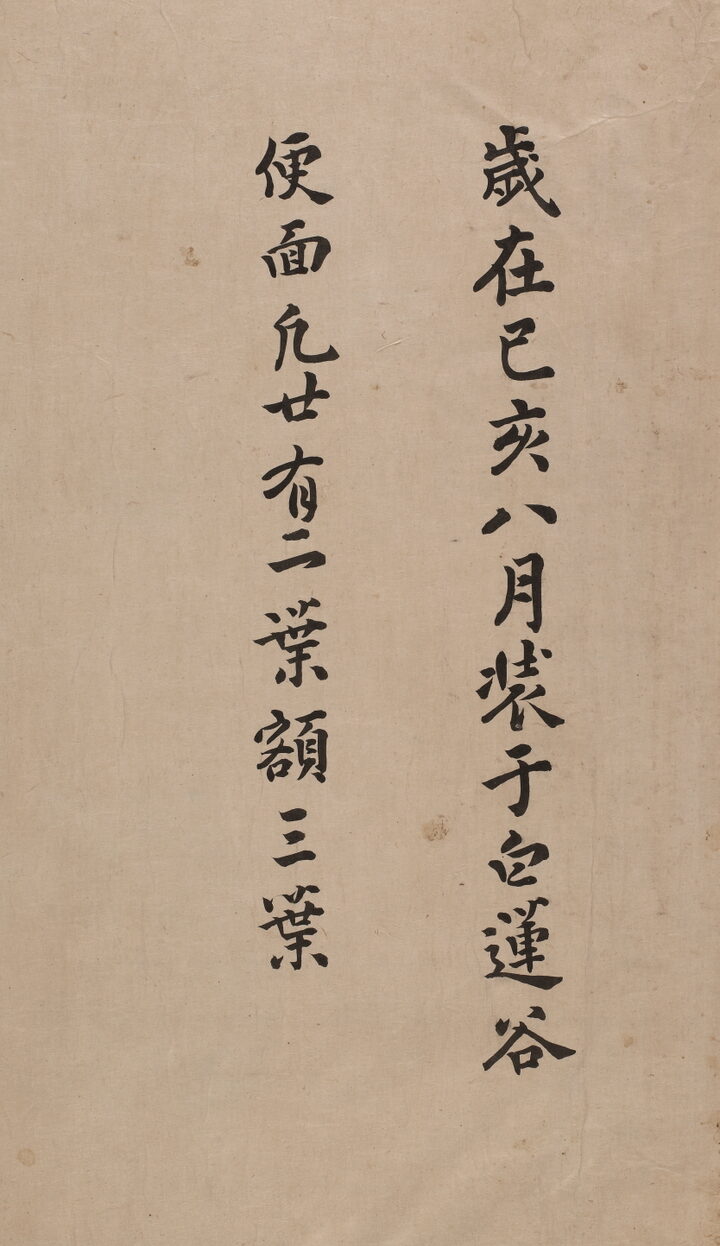 歲在已亥八月裝于白蓮谷
便面凡廿有二葉額三葉